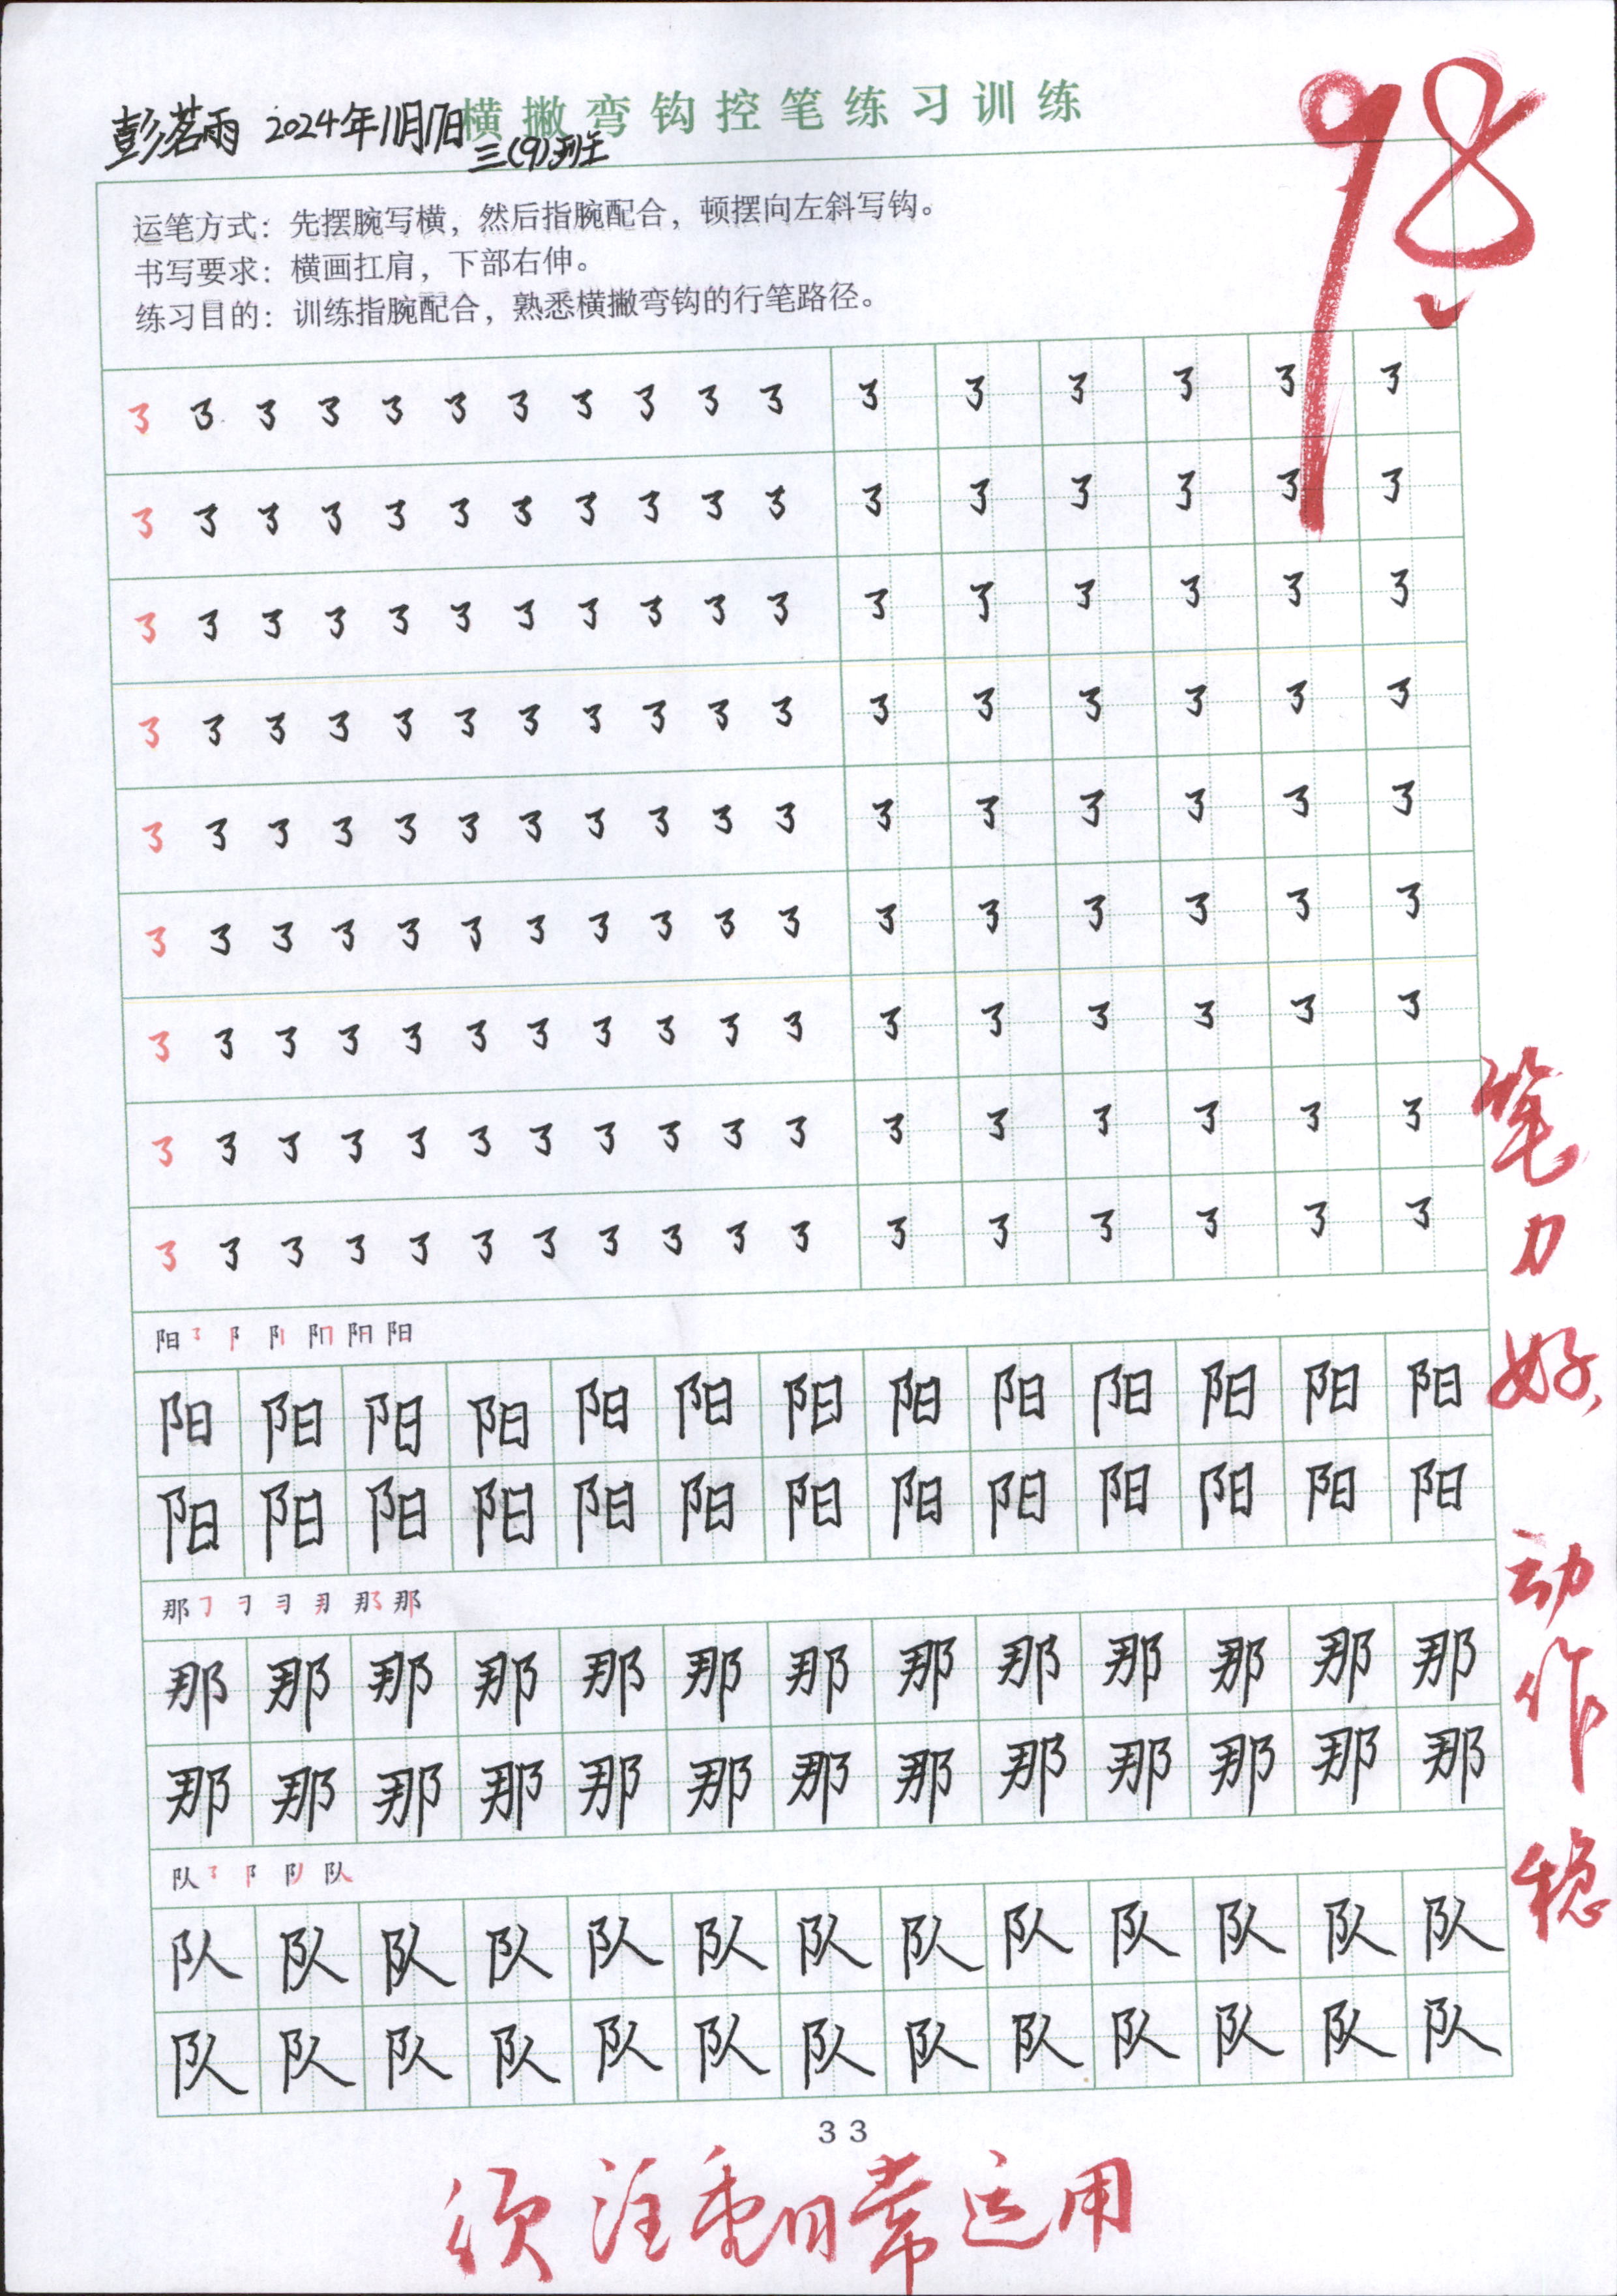 横撇弯钩控笔练习训练
彭茗雨 2024年11月17日
三(9)班
98
运笔方式：先摆腕写横，然后指腕配合，顿摆向左斜写钩。
书写要求：横画扛肩，下部右伸。
练习目的：训练指腕配合，熟悉横撇弯钩的行笔路径。
㇌ ㇌ ㇌ ㇌ ㇌ ㇌ ㇌ ㇌ ㇌ ㇌ ㇌ ㇌ ㇌ ㇌ ㇌ ㇌ ㇌
㇌ ㇌ ㇌ ㇌ ㇌ ㇌ ㇌ ㇌ ㇌ ㇌ ㇌ ㇌ ㇌ ㇌ ㇌ ㇌ ㇌
㇌ ㇌ ㇌ ㇌ ㇌ ㇌ ㇌ ㇌ ㇌ ㇌ ㇌ ㇌ ㇌ ㇌ ㇌ ㇌ ㇌
㇌ ㇌ ㇌ ㇌ ㇌ ㇌ ㇌ ㇌ ㇌ ㇌ ㇌ ㇌ ㇌ ㇌ ㇌ ㇌ ㇌
㇌ ㇌ ㇌ ㇌ ㇌ ㇌ ㇌ ㇌ ㇌ ㇌ ㇌ ㇌ ㇌ ㇌ ㇌ ㇌ ㇌
㇌ ㇌ ㇌ ㇌ ㇌ ㇌ ㇌ ㇌ ㇌ ㇌ ㇌ ㇌ ㇌ ㇌ ㇌ ㇌ ㇌
㇌ ㇌ ㇌ ㇌ ㇌ ㇌ ㇌ ㇌ ㇌ ㇌ ㇌ ㇌ ㇌ ㇌ ㇌ ㇌ ㇌
㇌ ㇌ ㇌ ㇌ ㇌ ㇌ ㇌ ㇌ ㇌ ㇌ ㇌ ㇌ ㇌ ㇌ ㇌ ㇌ ㇌
㇌ ㇌ ㇌ ㇌ ㇌ ㇌ ㇌ ㇌ ㇌ ㇌ ㇌ ㇌ ㇌ ㇌ ㇌ ㇌ ㇌
阳
阳 阳 阳 阳 阳 阳 阳 阳 阳 阳 阳 阳 阳
阳 阳 阳 阳 阳 阳 阳 阳 阳 阳 阳 阳 阳
那
那 那 那 那 那 那 那 那 那 那 那 那 那
那 那 那 那 那 那 那 那 那 那 那 那 那
队
队 队 队 队 队 队 队 队 队 队 队 队 队
队 队 队 队 队 队 队 队 队 队 队 队 队
笔力好，动作稳
33
须注重日常运用